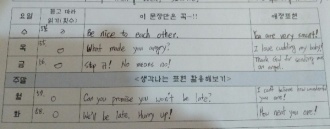 요일 듣고 따라 읽기(횟수) 이 문장만은 꼭~!! 예상표현
수 5 Be nice to each other. You are very sweet!
목 5 What make you angry? I love cuddling my baby!
금 5 Stop it! No means no! Thank God for sending me an angel.
주말 <생각나는 표현 활용해보기>
월 Can you promise you won't be late? I can't believe how wonderful you are!
화 We'll be late. Hurry up! How neat you are!